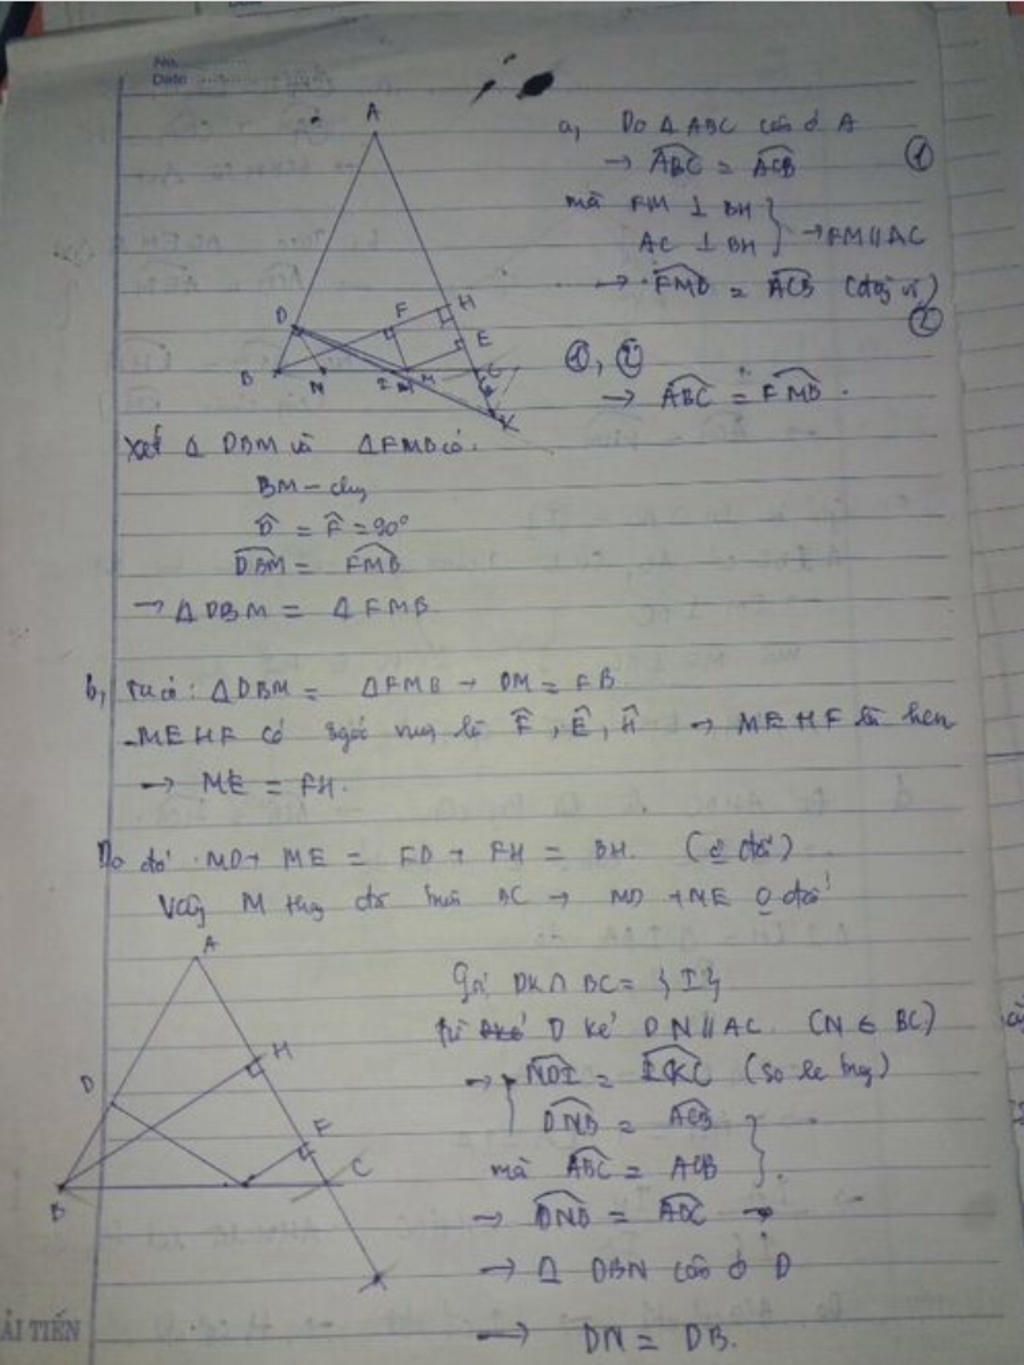 No.
Date
A
D
F
H
E
B
N
I
M
C
K
a, Do Δ ABC cân ở A
→ ABC = ACB
①
mà FM ⊥ BH
AC ⊥ BH } → FM // AC
→ FMB = ACB (đồng vị)
②
①, ②
→ ABC = FMB.
Xét Δ DBM và Δ FMB có:
BM - chung
D = F = 90°
DBM = FMB
→ Δ DBM = Δ FMB
b, Ta có: Δ DBM = Δ FMB → DM = FB
- MEHF có 3 góc vuông là F, E, H → MEHF là hcn
→ ME = FH.
Do đó MD + ME = FB + FH = BH. (ko đổi)
Vậy M thay đổi trên BC → MD + ME ko đổi
A
H
D
F
C
B
K
Gọi DK ∩ BC = {I}
Từ D kẻ DN // AC (N ∈ BC)
→ NDI = IKC (so le trong)
DNB = ACB
mà ABC = ACB }
→ DNB = ABC →
→ Δ DBN cân ở D
→ DN = DB.
ẢI TIẾN